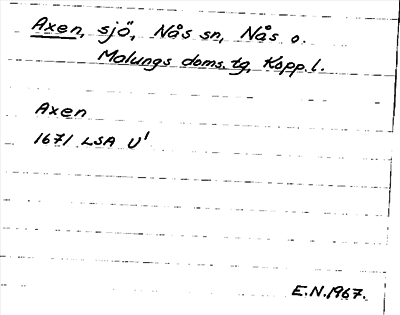 Axen, sjö, Nås sn, Nås o.
Malungs doms. tg, Kopp. l.
Axen
1671 LSA U¹
E.N. 1967.